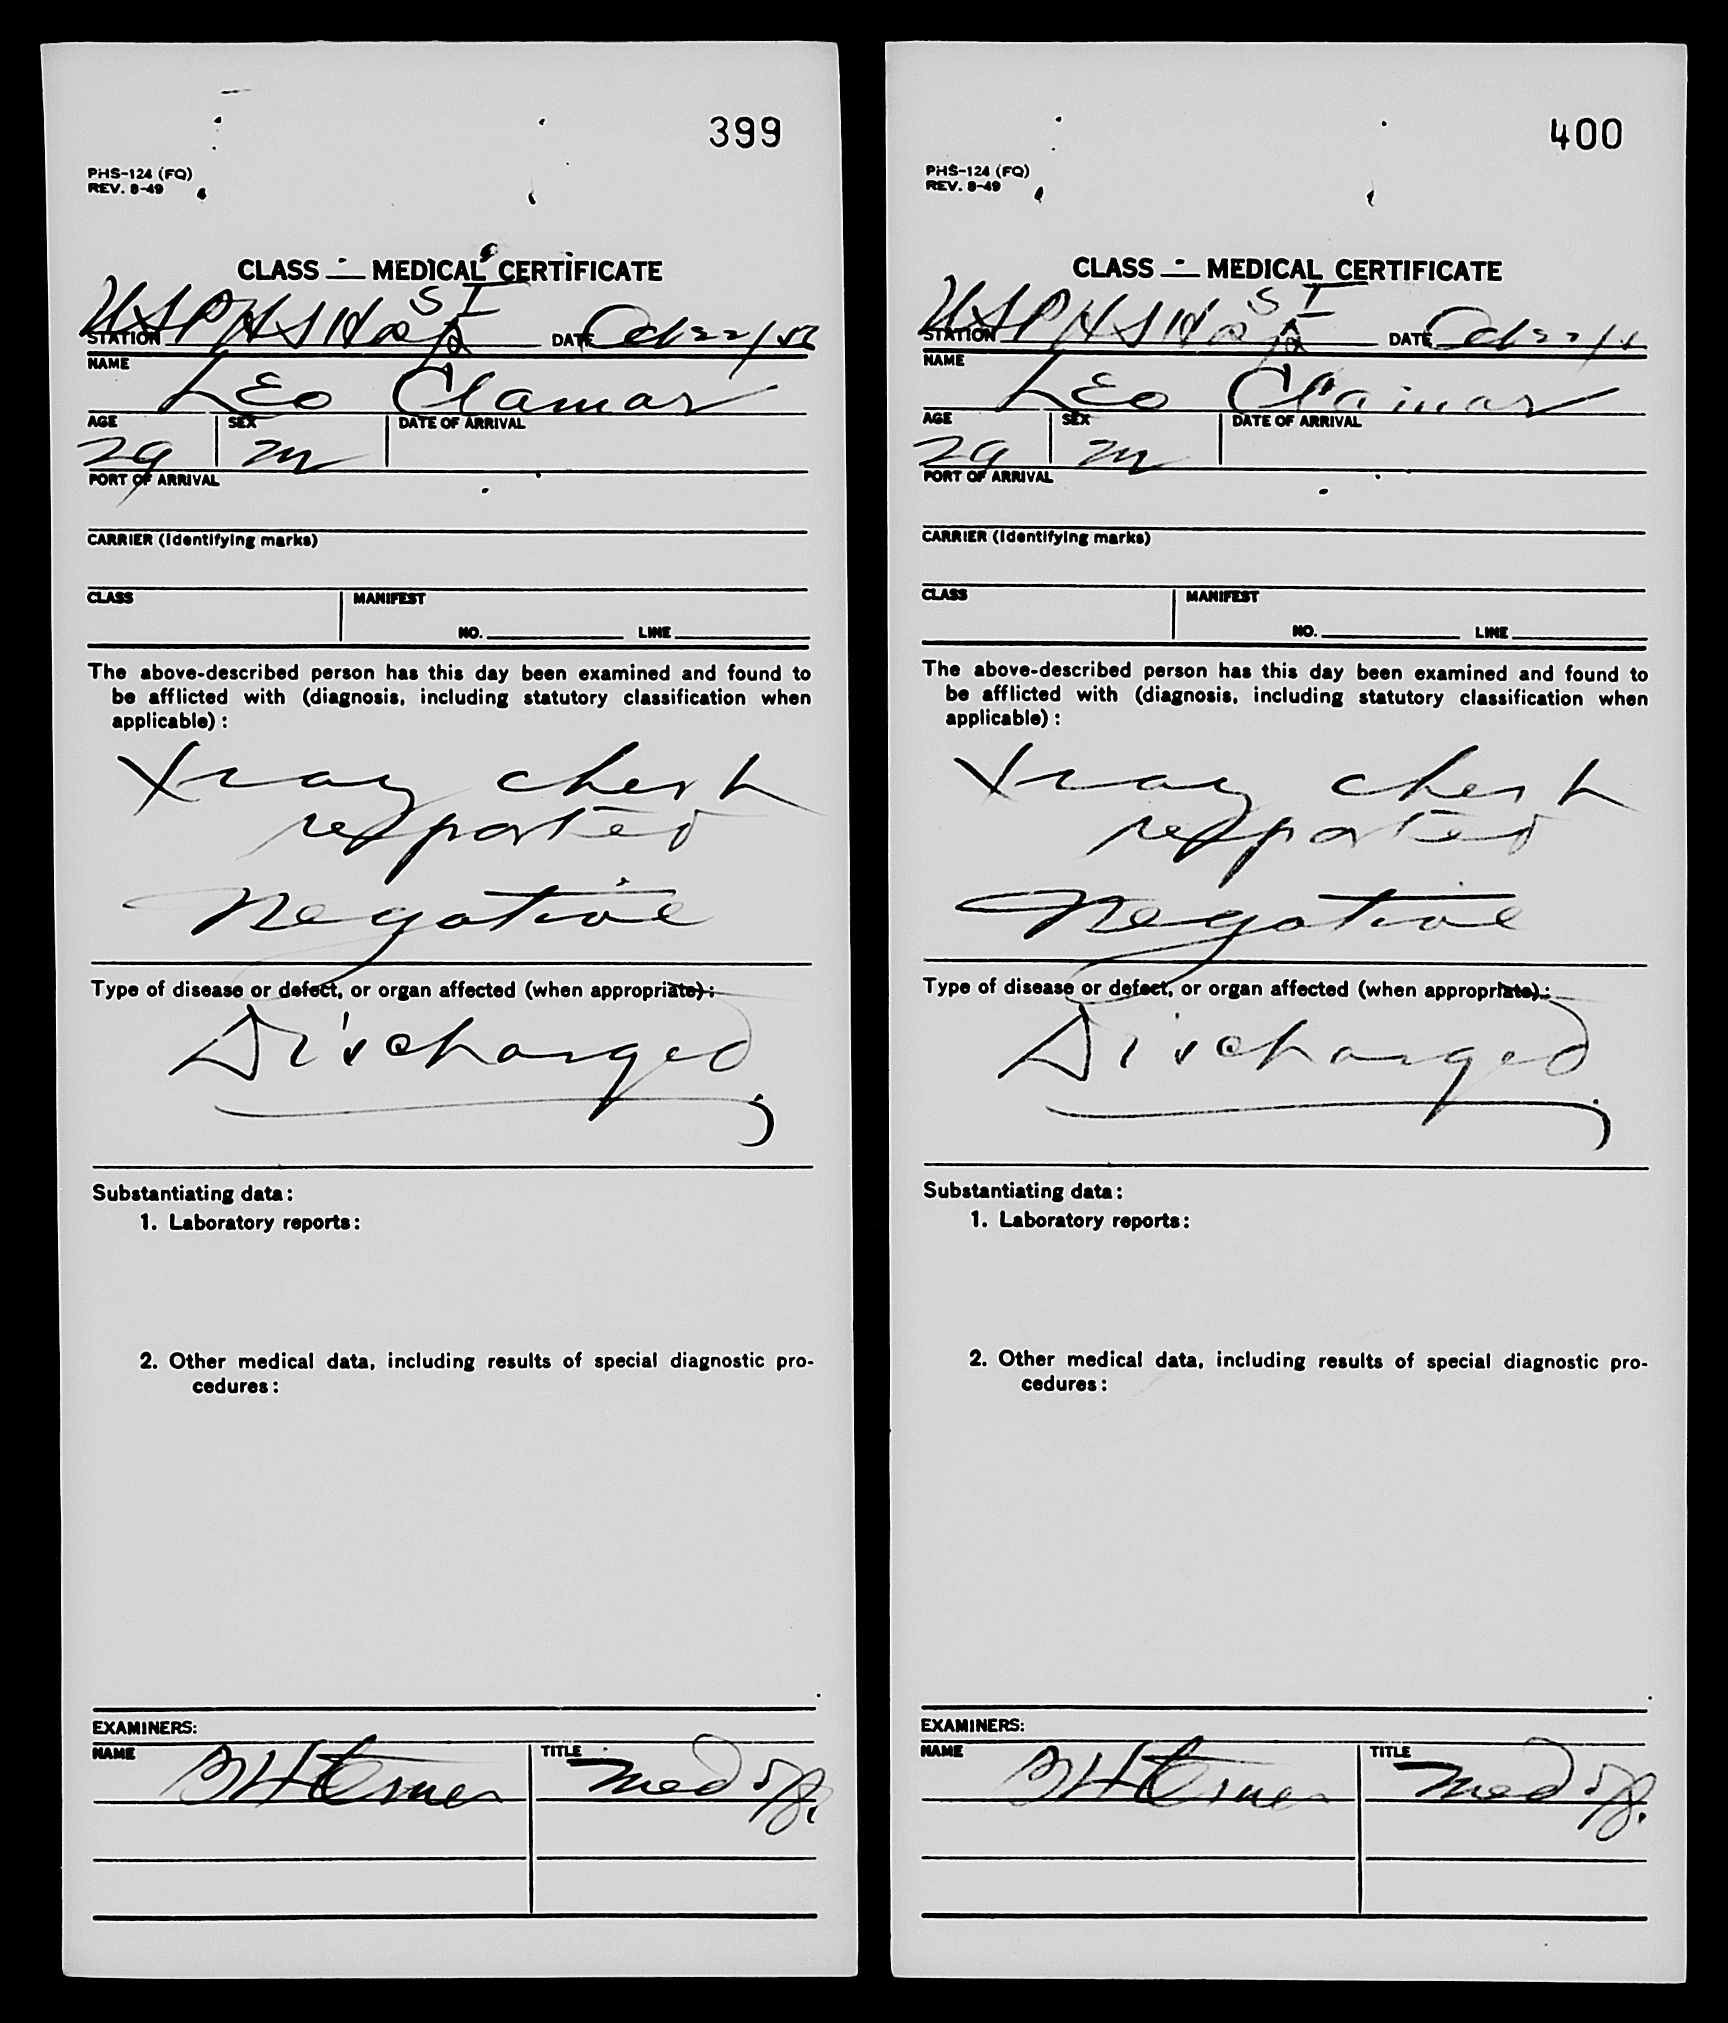 399
PHS-124 (FQ)
REV. 8-49
CLASS — MEDICAL CERTIFICATE
STATION USPHS Hosp S I DATE Oct 22/
NAME
Leo Clamar
AGE SEX DATE OF ARRIVAL
29 M
PORT OF ARRIVAL
CARRIER (Identifying marks)
CLASS MANIFEST
NO. LINE
The above-described person has this day been examined and found to
be afflicted with (diagnosis, including statutory classification when
applicable):
Xray chest
reported
Negative
Type of disease or defect, or organ affected (when appropriate):
Discharged
Substantiating data:
1. Laboratory reports:
2. Other medical data, including results of special diagnostic pro-
cedures:
EXAMINERS:
NAME TITLE
Med
400
PHS-124 (FQ)
REV. 8-49
CLASS — MEDICAL CERTIFICATE
STATION USPHS Hosp S I DATE Oct 22/
NAME
Leo Clamar
AGE SEX DATE OF ARRIVAL
29 M
PORT OF ARRIVAL
CARRIER (Identifying marks)
CLASS MANIFEST
NO. LINE
The above-described person has this day been examined and found to
be afflicted with (diagnosis, including statutory classification when
applicable):
Xray chest
reported
Negative
Type of disease or defect, or organ affected (when appropriate):
Discharged
Substantiating data:
1. Laboratory reports:
2. Other medical data, including results of special diagnostic pro-
cedures:
EXAMINERS:
NAME TITLE
Med